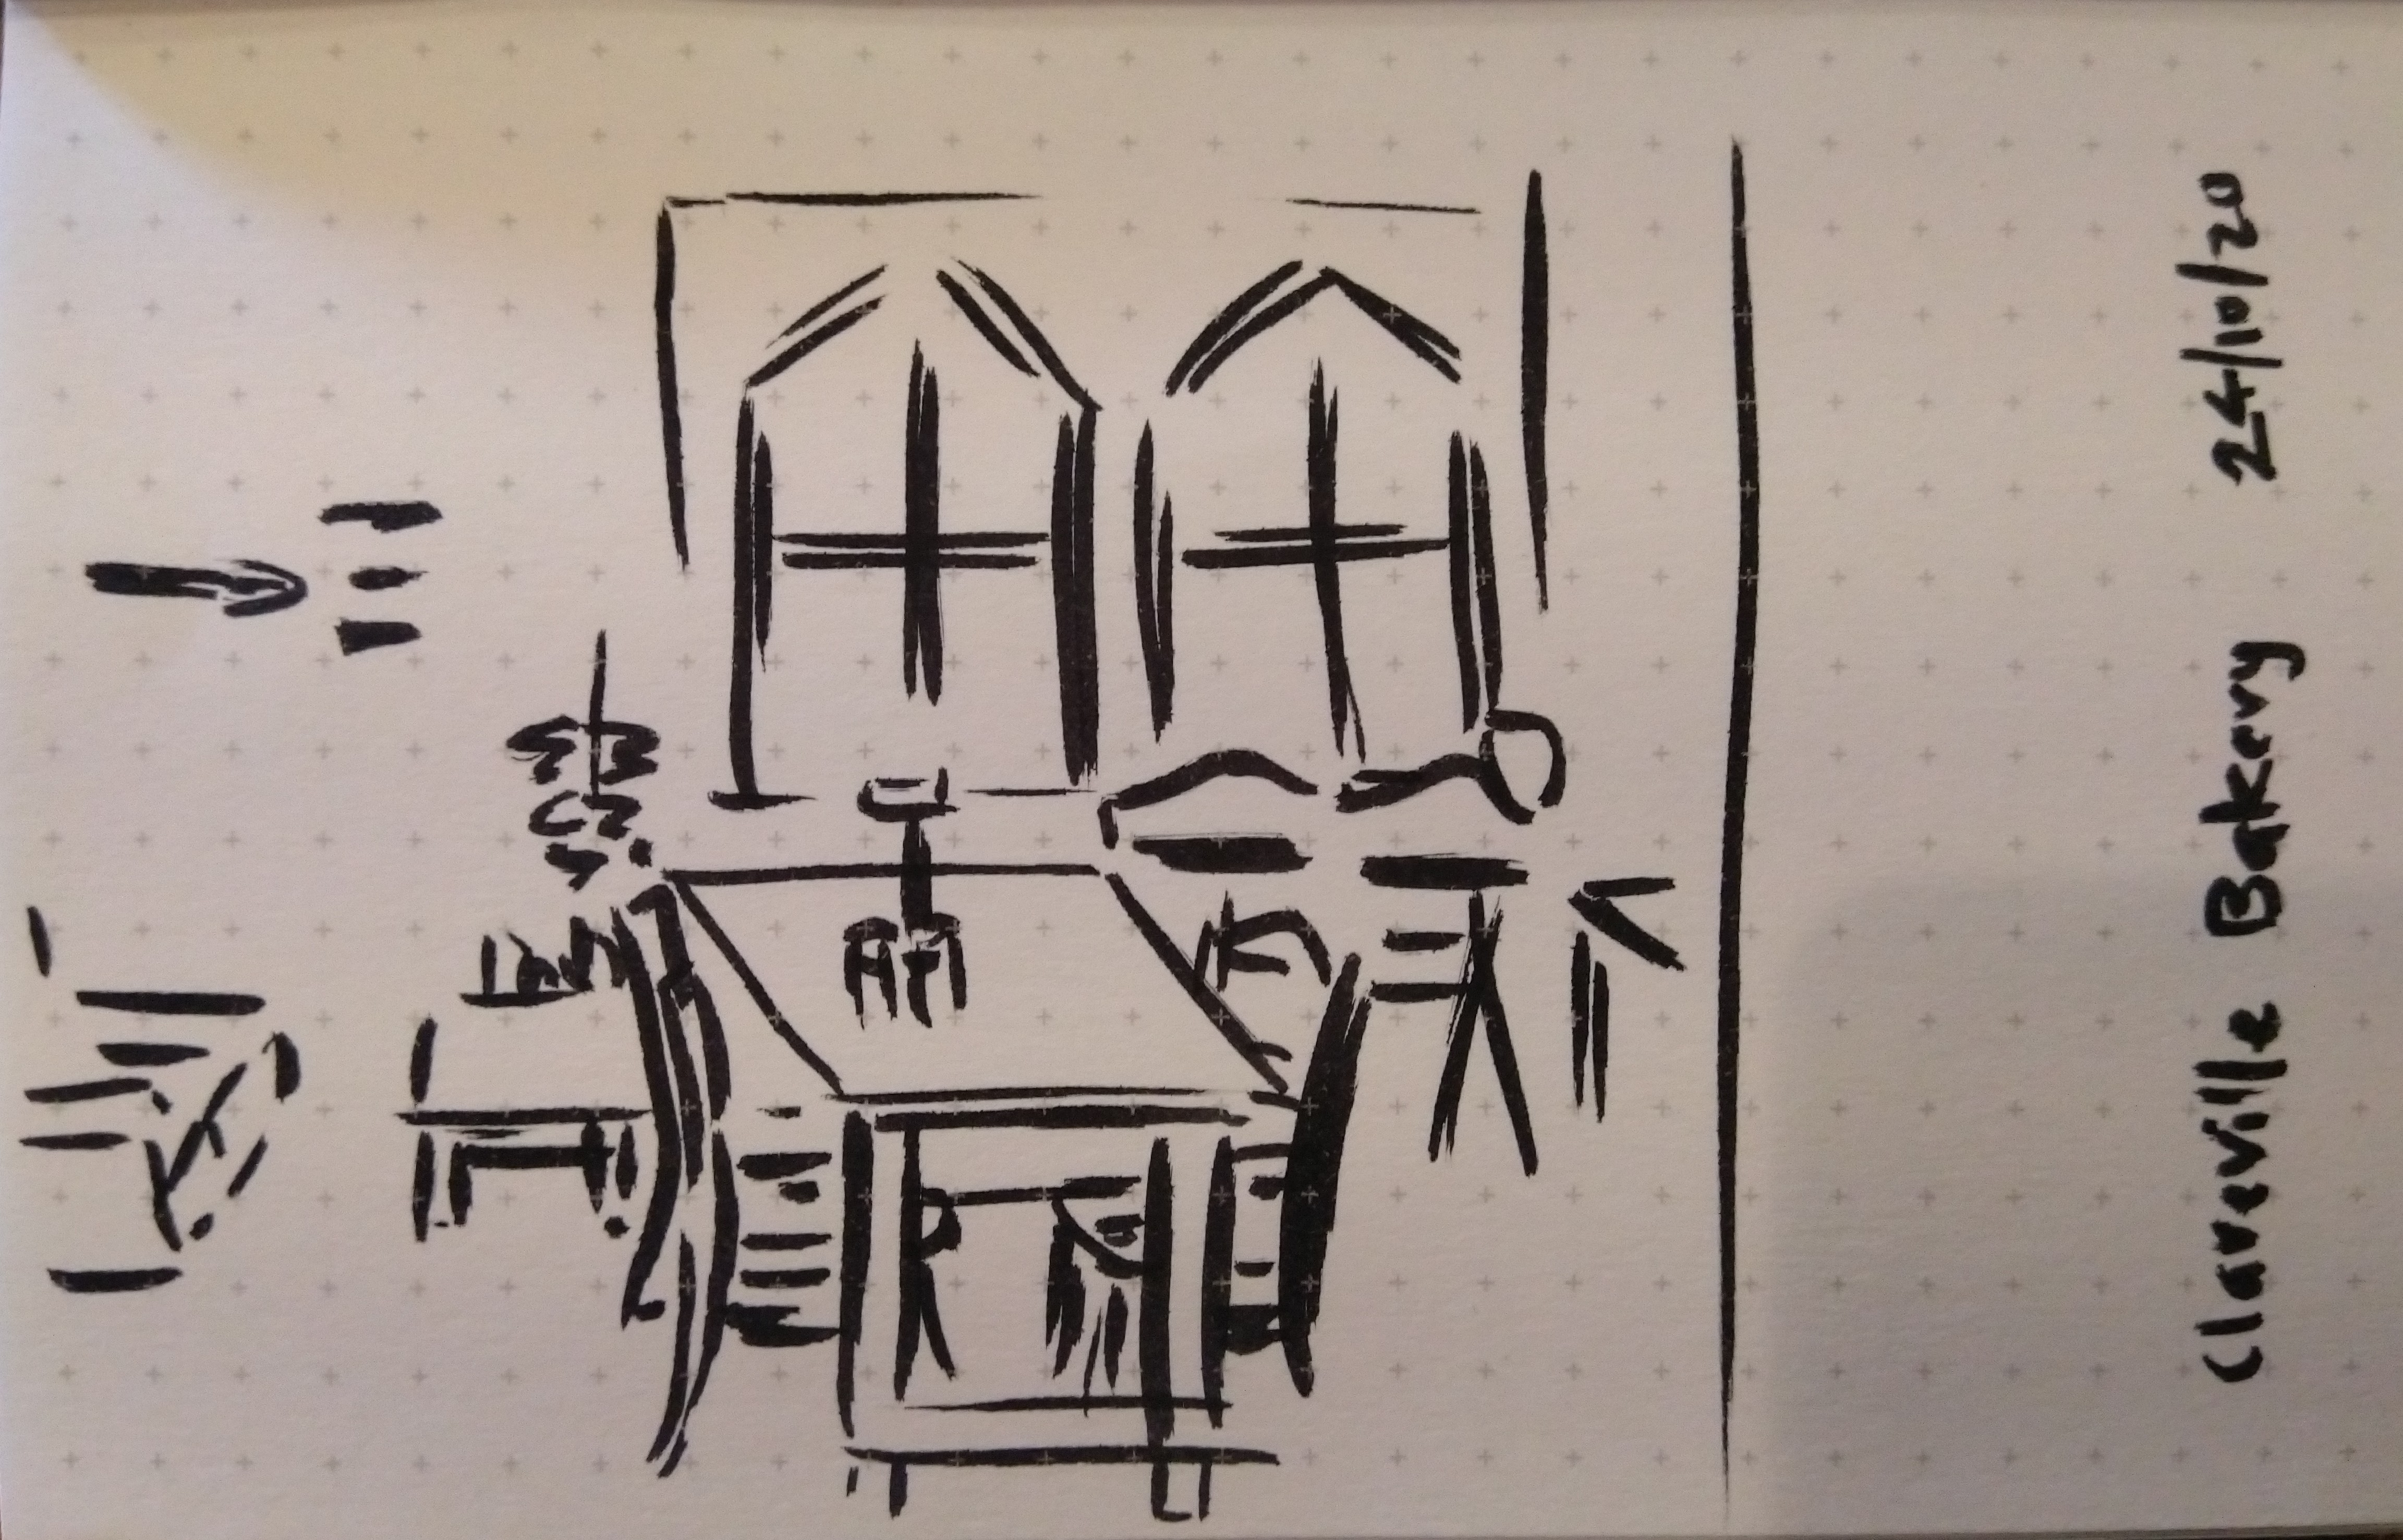 Clareville Bakery 24/10/20